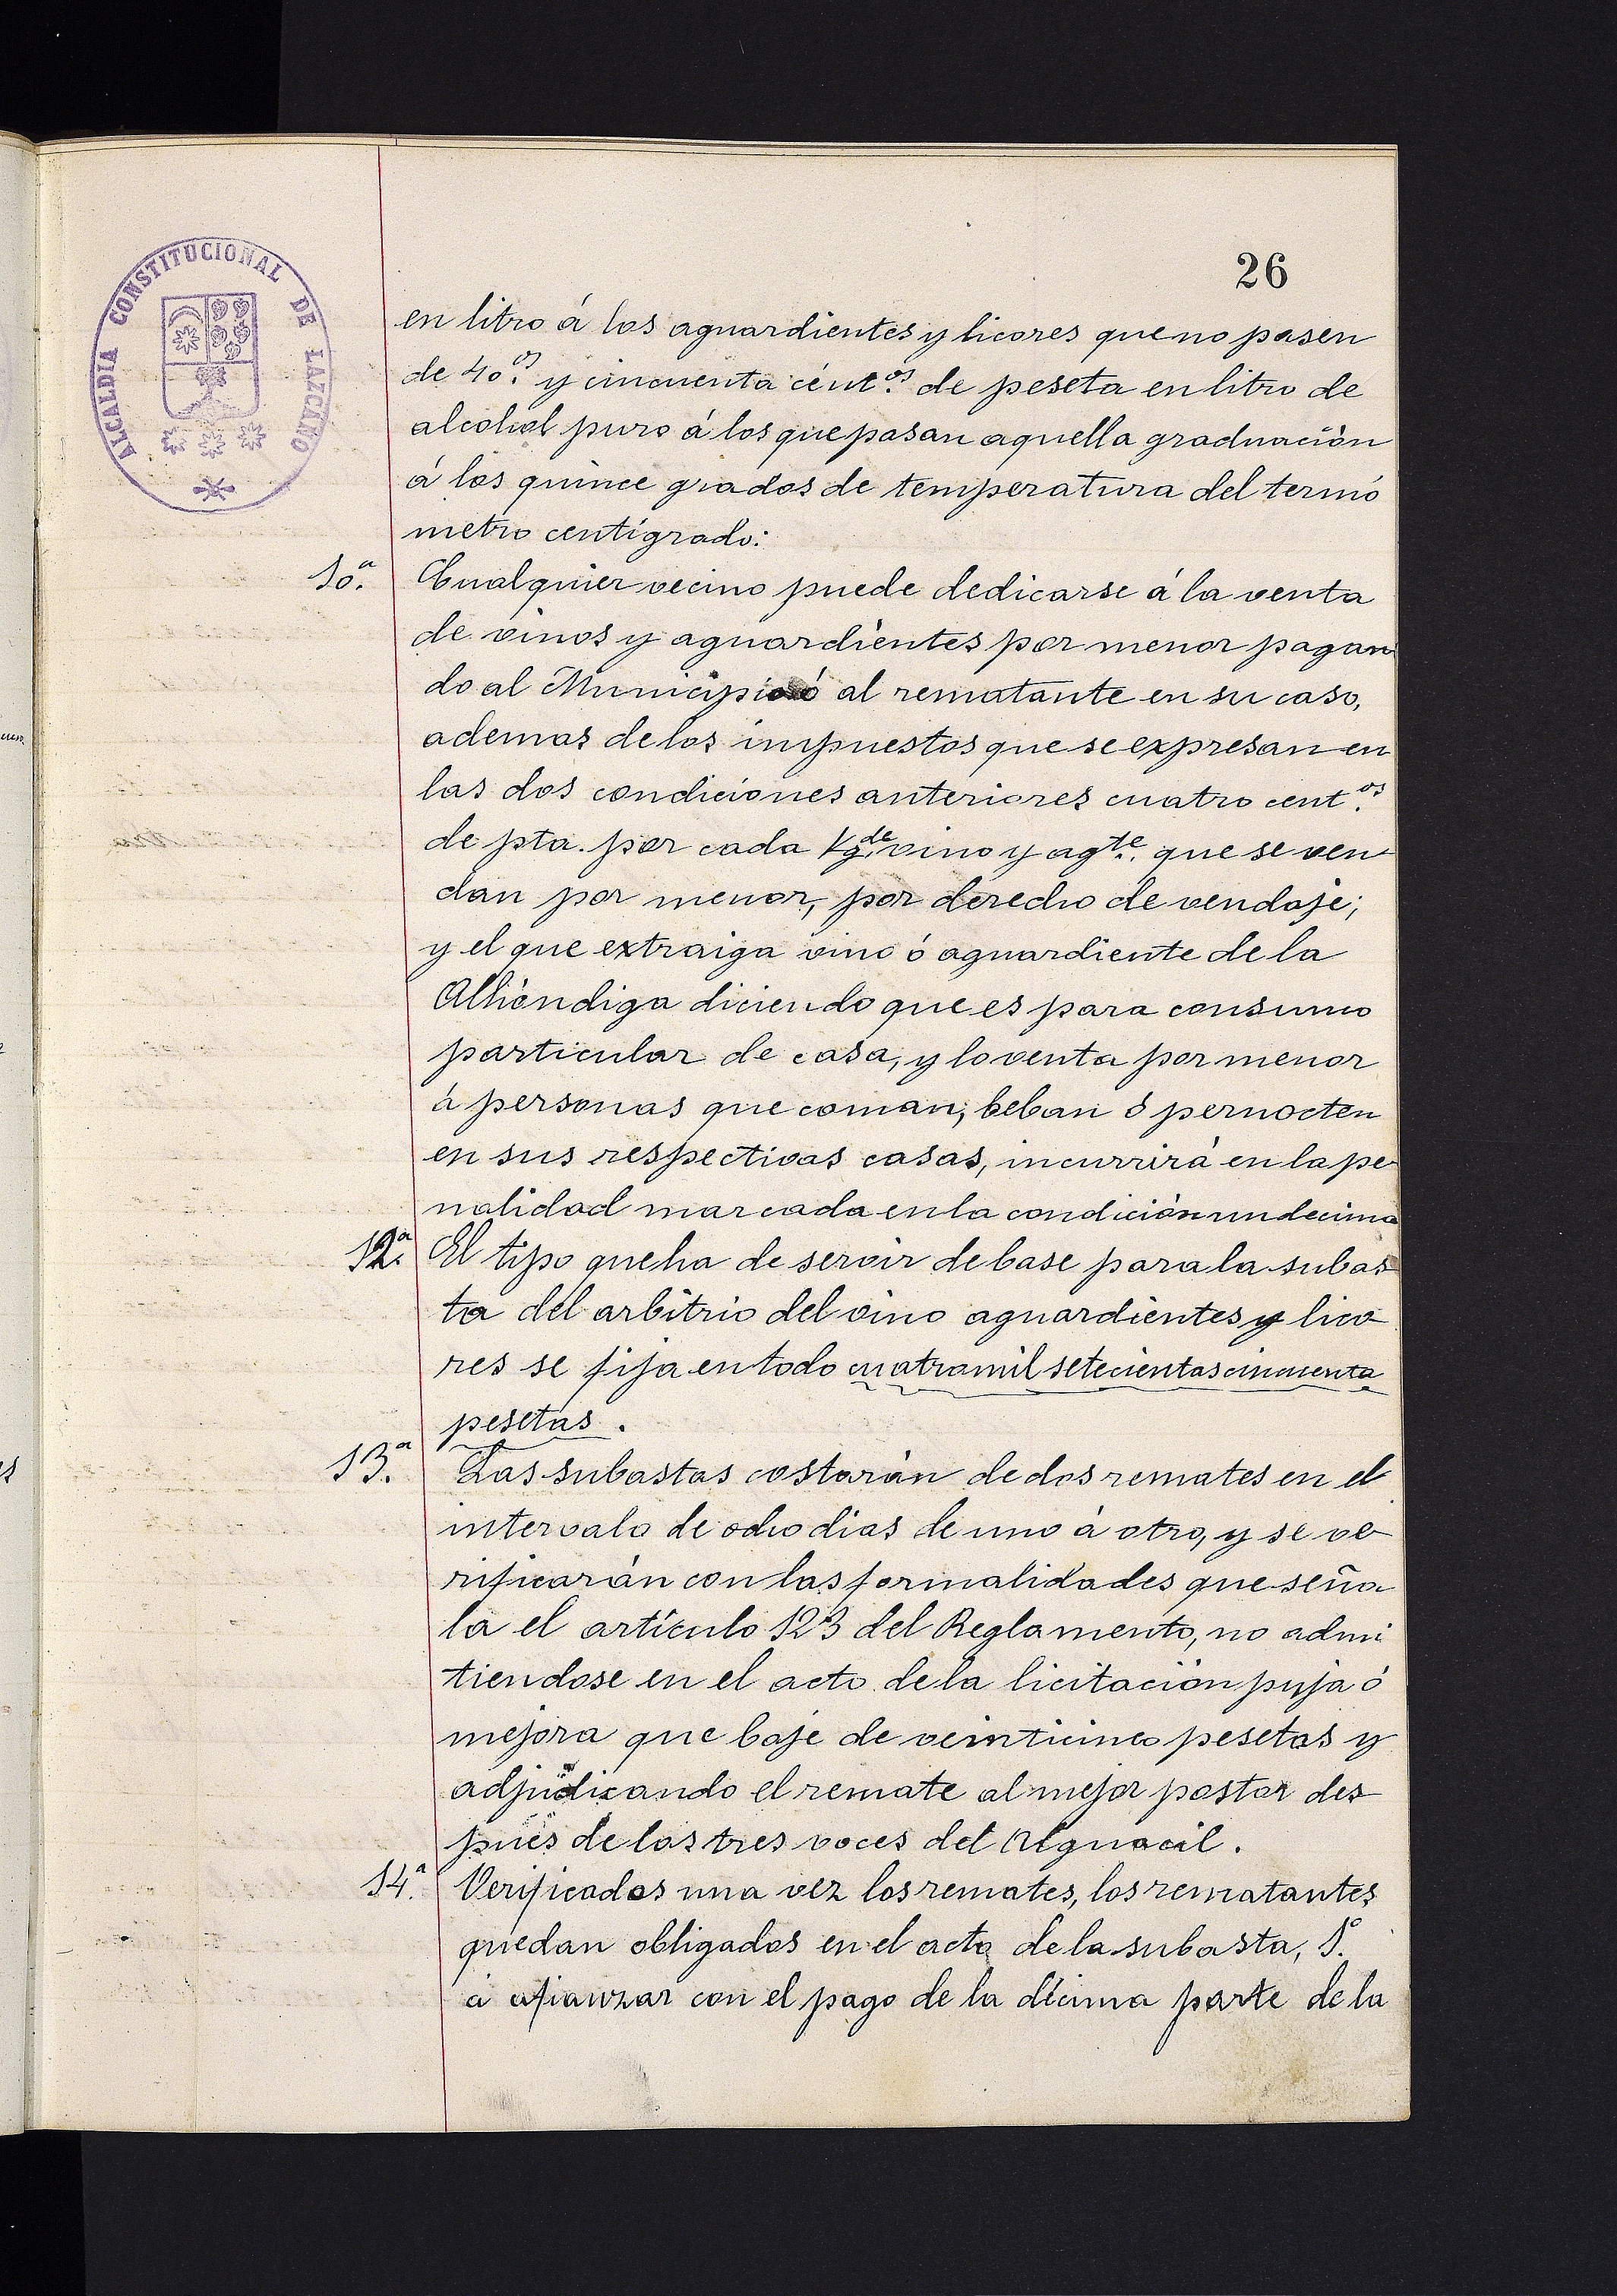 26
ALCALDIA CONSTITUCIONAL DE LAZCANO
en litro á los aguardientes y licores que no pasen
de 40.os y cincuenta cént.os de peseta en litro de
alcohol puro á los que pasan aquella graduación
á los quince grados de temperatura del termó
metro centígrado:
10.a Cualquier vecino puede dedicarse á la venta
de vinos y aguardientes por menor pagan
do al Municipio ó al rematante en su caso,
ademas de los impuestos que se expresan en
las dos condiciones anteriores cuatro cent.os
de pta. por cada Kg. de vino y ag.te que se ven
dan por menor, por derecho de vendaje;
y el que extraiga vino ó aguardiente de la
Alhóndiga diciendo que es para consumo
particular de casa, y lo venta por menor
á personas que coman, beban ó pernocten
en sus respectivas casas, incurrirá en la pe
nalidad marcada en la condición undecima
12.a El tipo que ha de servir de base para la subas
ta del arbitrio del vino aguardientes y lico
res se fija en todo cuatro mil setecientas cincuenta
pesetas.
13.a Las subastas costarán de dos remates en el
intervalo de ocho dias de uno á otro, y se ve
rificarán con las formalidades que seña
la el artículo 123 del Reglamento, no admi
tiendose en el acto de la licitación puja ó
mejora que baje de veinticinco pesetas y
adjudicando el remate al mejor postor des
pués de las tres voces del Alguacil.
14.a Verificados una vez los remates, los rematantes
quedan obligados en el acto de la subasta, 1.o
á afianzar con el pago de la décima parte de la